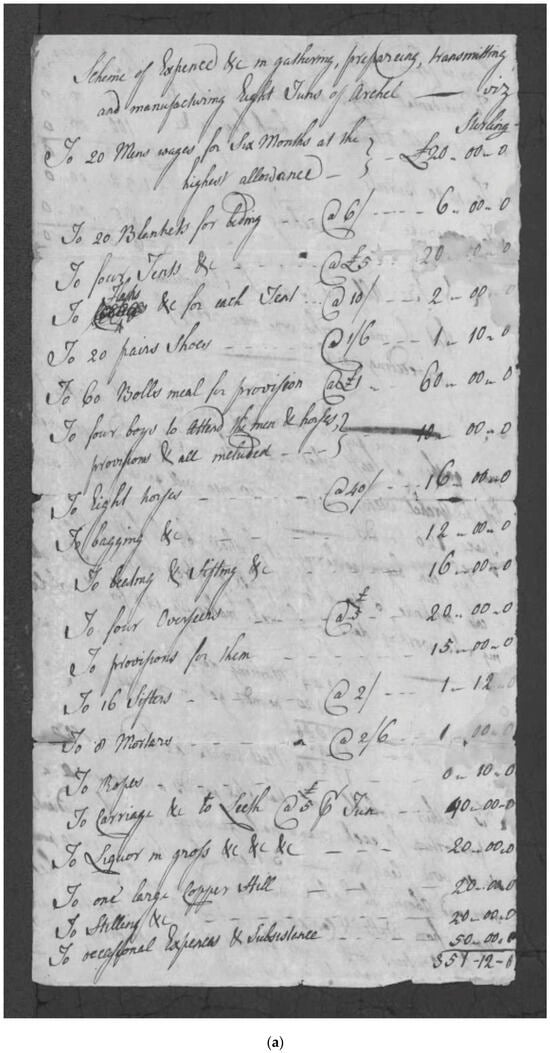 Scheme of Expence &c in gathering, prepareing, transmitting
and manufacturing Eight Tuns of Archel — viz
Sterling
To 20 Mens wages for Six Months at the
highest allowance — £20-00-0
To 20 Blankets for beding - @ 6/ ---- 6-00-0
To four Tents &c - - - @ £5 - 20-00-0
To Flasks &c for each Tent .. @ 10/ --- 2-00-0
To 20 pairs Shoes ---- @ 1/6 --- 1-10-0
To 60 Bolls meal for provision @ £1 .. 60-00-0
To four boys to attend the men & horses,
provisions & all included --- 10-00-0
To Eight horses - - - - @ 40/ --- 16-00-0
To bagging &c - - - - 12-00-0
To beating & Sifting &c - - - 16-00-0
To four Overseers - - @ £5 -- 20-00-0
To provisions for them - - - - 15-00-0
To 16 Sifters - - - @ 2/ --- 1-12-0
To 8 Mortars - - - @ 2/6 --- 1-00-0
To Ropes - - - - - 0-10-0
To Carriage &c to Leith @ £5 Tun 40-00-0
To Liquor in gross &c &c &c - - - 20-00-0
To one large Copper Still - - - 20-00-0
To Stilling &c - - - - 20-00-0
To occasional Expences & Subsistance - - - 50-00-0
351-12-0
(a)